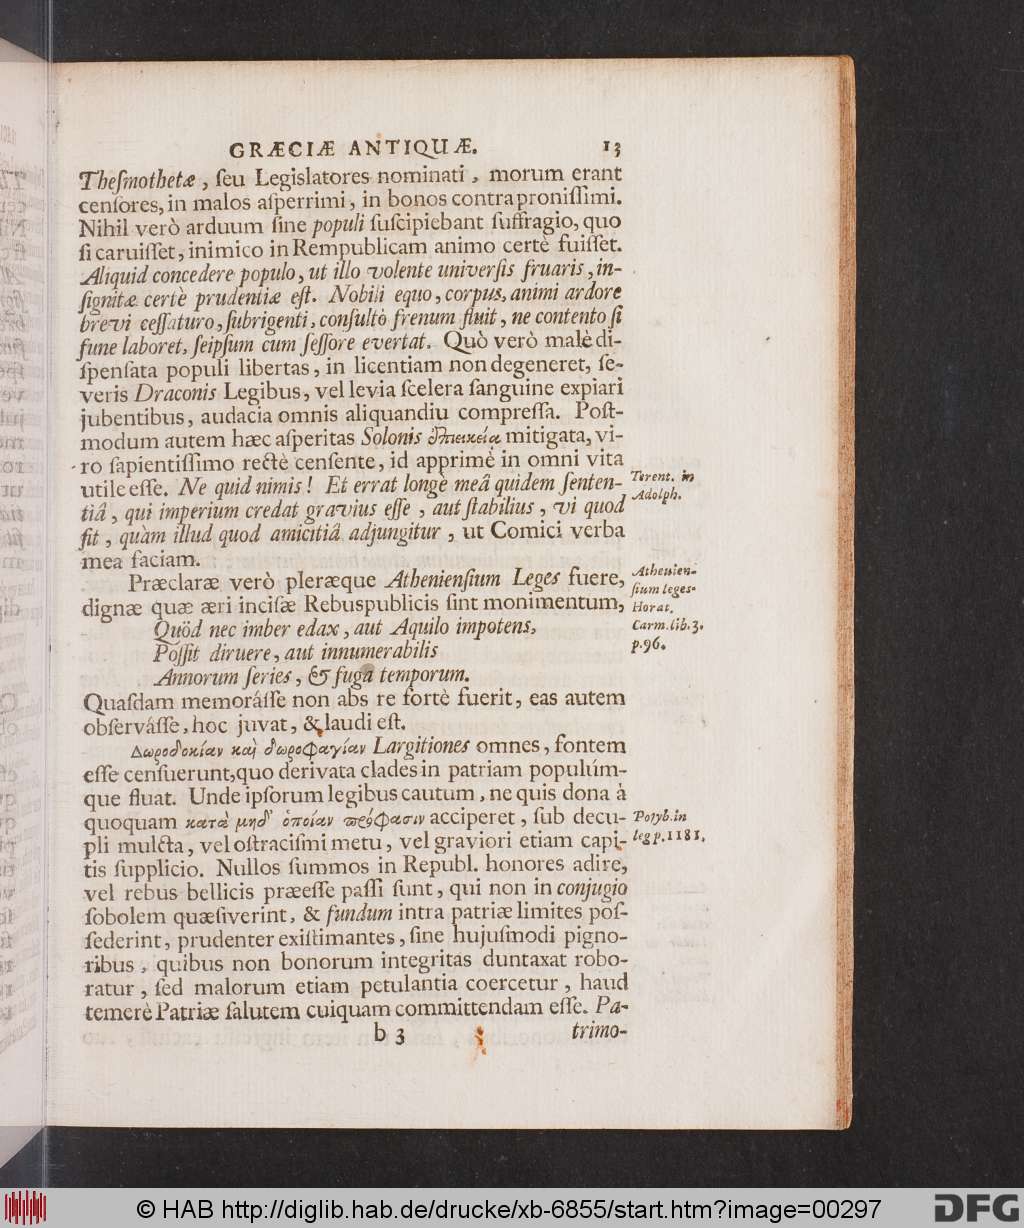 GRÆCIÆ ANTIQUÆ. 13
Theſmothetæ, ſeu Legislatores nominati, morum erant
cenſores, in malos aſperrimi, in bonos contra proniſſimi.
Nihil verò arduum ſine populi ſuſcipiebant ſuffragio, quo
ſi caruiſſet, inimico in Rempublicam animo certè fuiſſet.
Aliquid concedere populo, ut illo volente univerſis fruaris, in-
ſignitæ certè prudentiæ eſt. Nobili equo, corpus, animi ardore
brevi ceſſaturo, ſubrigenti, conſultò frenum ſluit, ne contento ſi
fune laboret, ſeipſum cum ſeſſore evertat. Quò verò malè di-
ſpenſata populi libertas, in licentiam non degeneret, ſe-
veris Draconis Legibus, vel levia ſcelera ſanguine expiari
jubentibus, audacia omnis aliquandiu compreſſa. Poſt-
modum autem hæc aſperitas Solonis ἐπιεικείᾳ mitigata, vi-
ro ſapientiſſimo rectè cenſente, id apprimè in omni vita
utile eſſe. Ne quid nimis! Et errat longè meâ quidem ſenten-
tiâ, qui imperium credat gravius eſſe, aut ſtabilius, vi quod
fit, quàm illud quod amicitiâ adjungitur, ut Comici verba
mea faciam.
Terent. in
Adolph.
Præclaræ verò pleræque Athenienſium Leges fuere,
dignæ quæ æri inciſæ Rebuspublicis ſint monimentum,
Quöd nec imber edax, aut Aquilo impotens,
Poſſit diruere, aut innumerabilis
Annorum ſeries, & fuga temporum.
Athenien-
ſium leges.
Horat.
Carm. lib. 3.
p. 96.
Quaſdam memoráſſe non abs re fortè fuerit, eas autem
obſerváſſe, hoc juvat, & laudi eſt.
Δωροδοκίαν καὶ δωροφαγίαν Largitiones omnes, fontem
eſſe cenſuerunt, quo derivata clades in patriam populúm-
que fluat. Unde ipſorum legibus cautum, ne quis dona à
quoquam κατὰ μηδ' ὁποίαν πρόφασιν acciperet, ſub decu-
pli mulcta, vel oſtraciſmi metu, vel graviori etiam capi-
tis ſupplicio. Nullos ſummos in Republ. honores adire,
vel rebus bellicis præeſſe paſſi ſunt, qui non in conjugio
ſobolem quæſiverint, & fundum intra patriæ limites poſ-
ſederint, prudenter exiſtimantes, ſine hujuſmodi pigno-
ribus, quibus non bonorum integritas duntaxat robo-
ratur, ſed malorum etiam petulantia coercetur, haud
temerè Patriæ ſalutem cuiquam committendam eſſe. Pa-
Polyb. in
leg p. 1181.
b 3 trimo-
© HAB http://diglib.hab.de/drucke/xb-6855/start.htm?image=00297
DFG